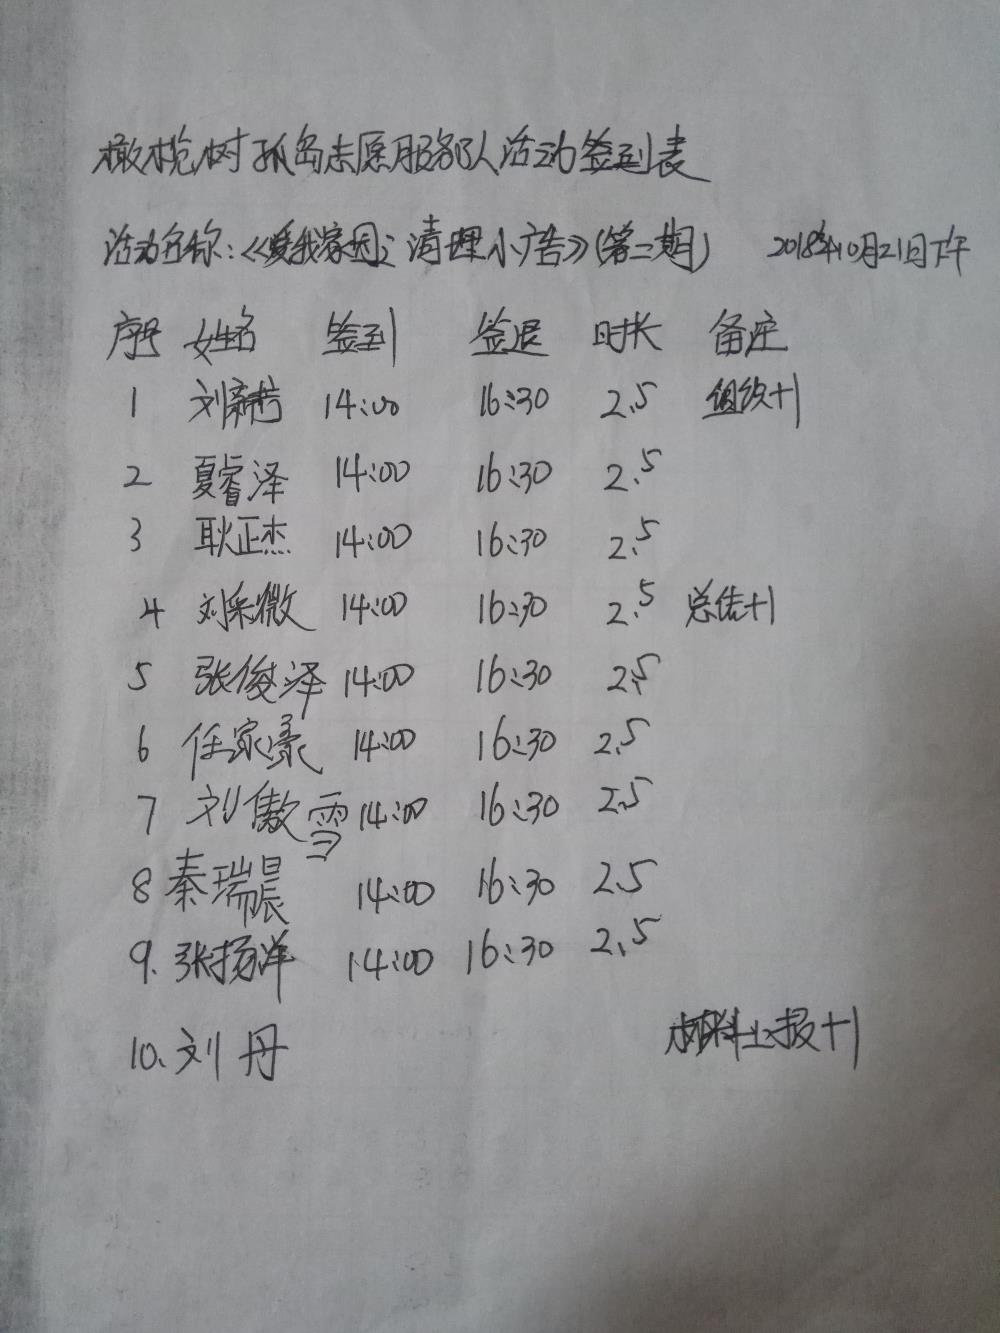 橄榄树孤岛志愿服务队活动签到表
活动名称:《爱我家园;清理小广告》(第二期) 2018年10月21日下午
序号 姓名 签到 签退 时长 备注
1 刘 14:00 16:30 2.5 组织+1
2 夏睿泽 14:00 16:30 2.5
3 耿正杰 14:00 16:30 2.5
4 刘采微 14:00 16:30 2.5 总结+1
5 张俊泽 14:00 16:30 2.5
6 任家豪 14:00 16:30 2.5
7 刘傲雪 14:00 16:30 2.5
8 秦瑞晨 14:00 16:30 2.5
9. 张扬洋 14:00 16:30 2.5
10. 刘丹 材料上报+1